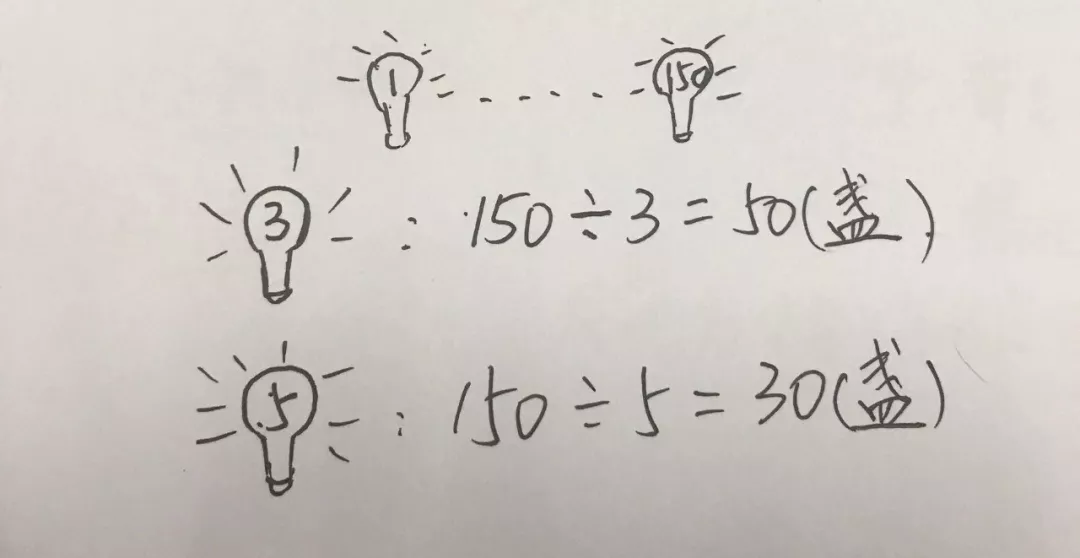 1 . . . . . 150
3 : 150÷3=50(盏)
5 : 150÷5=30(盏)